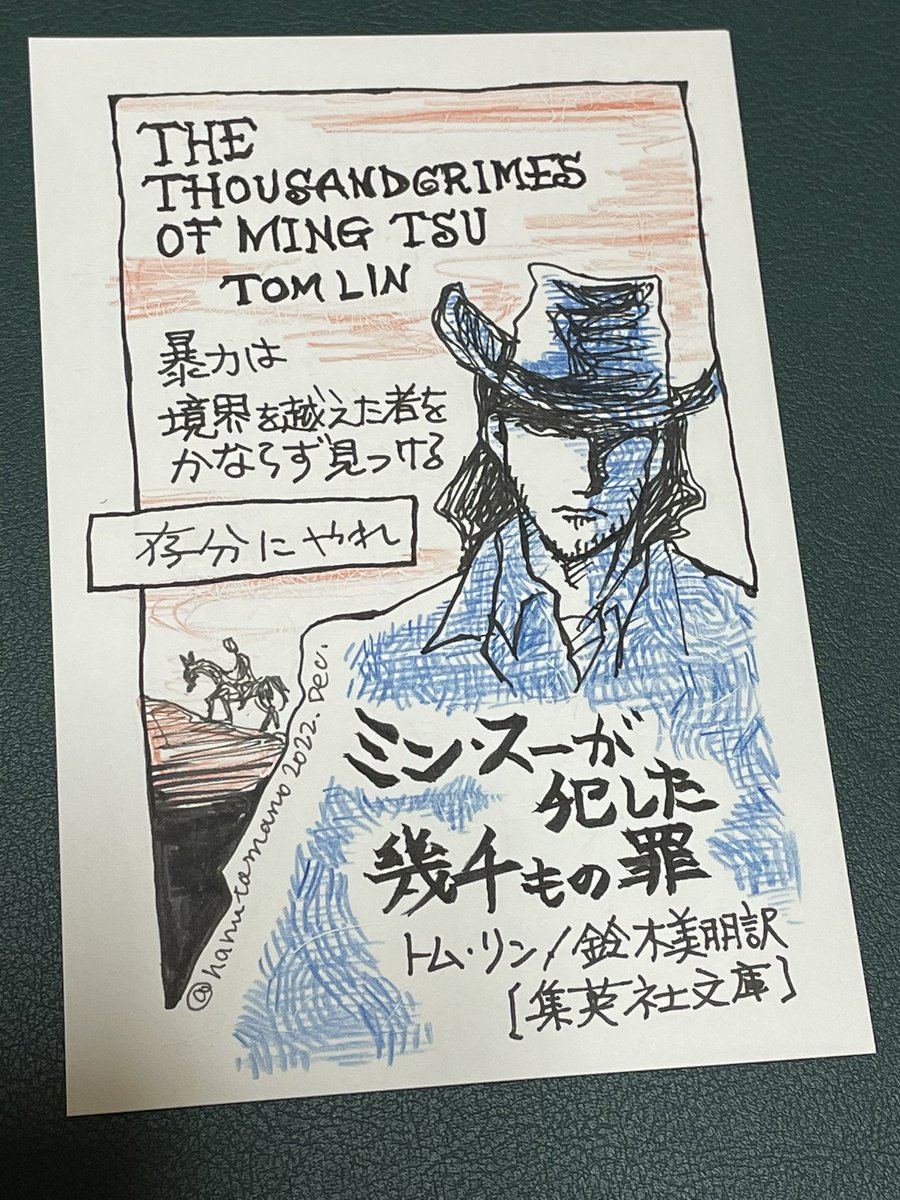 THE
THOUSANDCRIMES
OF MING TSU
TOM LIN
暴力は
境界を越えた者を
かならず見つける
存分にやれ
@hanutamano 2022. Dec.
ミン・スーが
犯した
幾千もの罪
トム・リン/鈴木美朋訳
[集英社文庫]